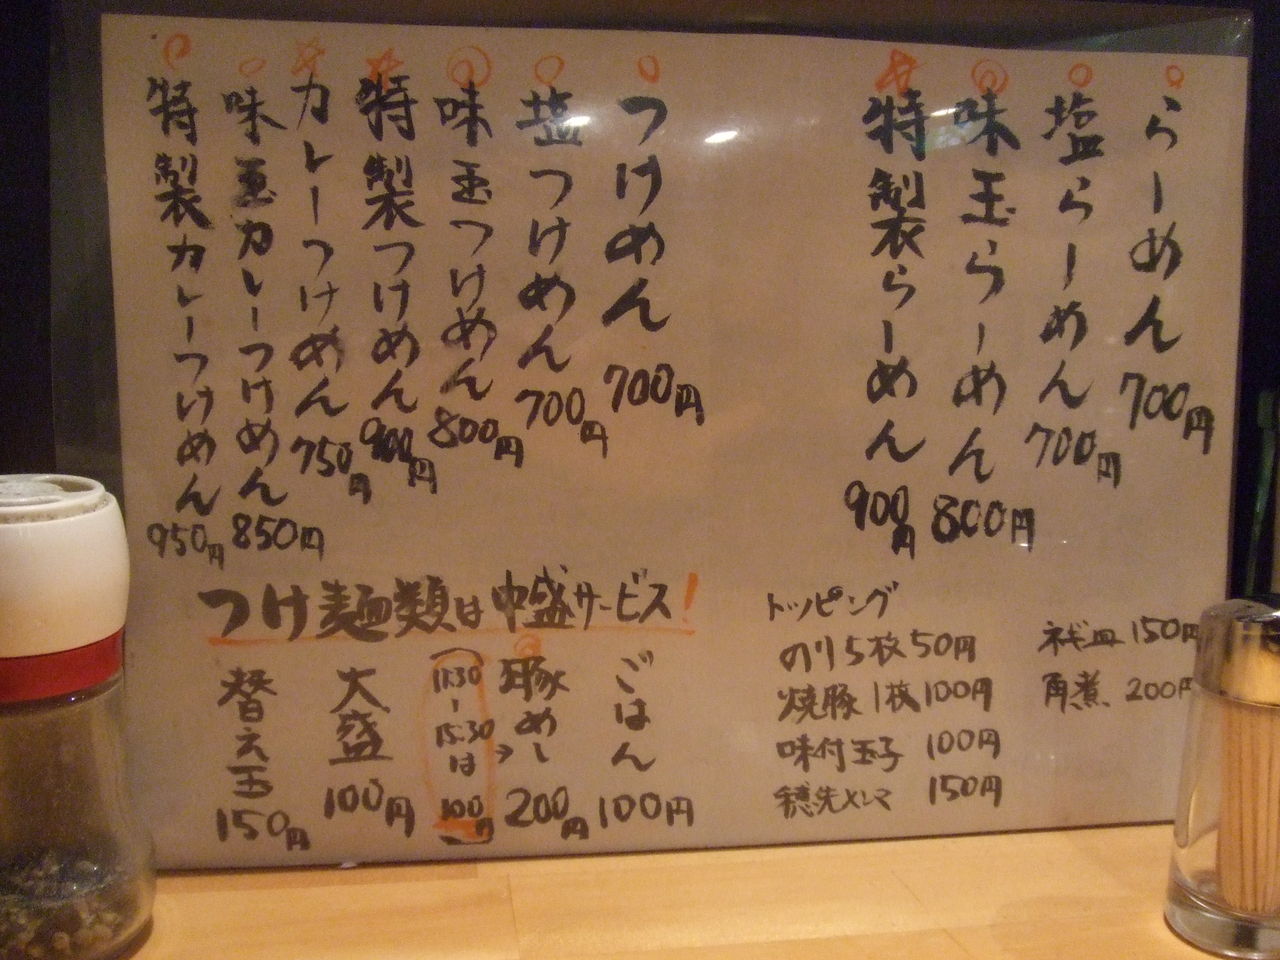 らーめん 700円
塩らーめん 700円
味玉らーめん 800円
特製らーめん 900円
つけめん 700円
塩つけめん 700円
味玉つけめん 800円
特製つけめん 900円
カレーつけめん 750円
味玉カレーつけめん 850円
特製カレーつけめん 950円
つけ麺類は中盛サービス!
ごはん 100円
豚めし 200円
11:30-15:30は100円
大盛 100円
替え玉 150円
トッピング
のり5枚 50円
焼豚1枚 100円
味付玉子 100円
穂先メンマ 150円
ネギ皿 150円
角煮 200円